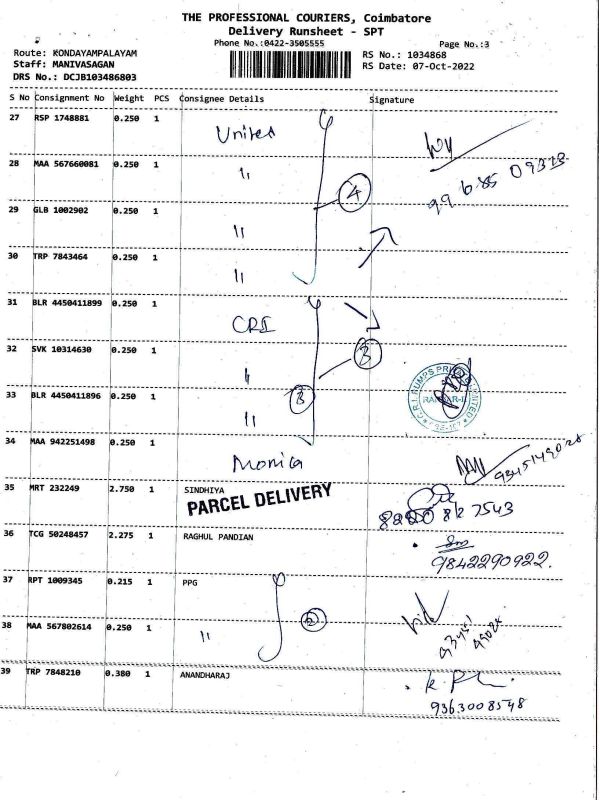 THE PROFESSIONAL COURIERS, Coimbatore
Delivery Runsheet - SPT
Phone No.:0422-3505555
Page No.:3
Route: KONDAYAMPALAYAM
RS No.: 1034868
Staff: MANIVASAGAN
RS Date: 07-Oct-2022
DRS No.: DCJB103486803
S No Consignment No Weight PCS Consignee Details Signature
27 RSP 1748881 0.250 1 United
28 MAA 567660081 0.250 1 "
4
29 GLB 1002902 0.250 1 "
30 TRP 7843464 0.250 1 "
31 BLR 4450411899 0.250 1 CRI
32 SVK 10314630 0.250 1 "
3
33 BLR 4450411896 0.250 1 "
3
34 MAA 942251498 0.250 1 Monica
35 MRT 232249 2.750 1 SINDHIYA
PARCEL DELIVERY
36 TCG 50248457 2.275 1 RAGHUL PANDIAN
9842290922.
37 RPT 1009345 0.215 1 PPG
2
38 MAA 567802614 0.250 1 "
39 TRP 7848210 0.380 1 ANANDHARAJ
9363008548